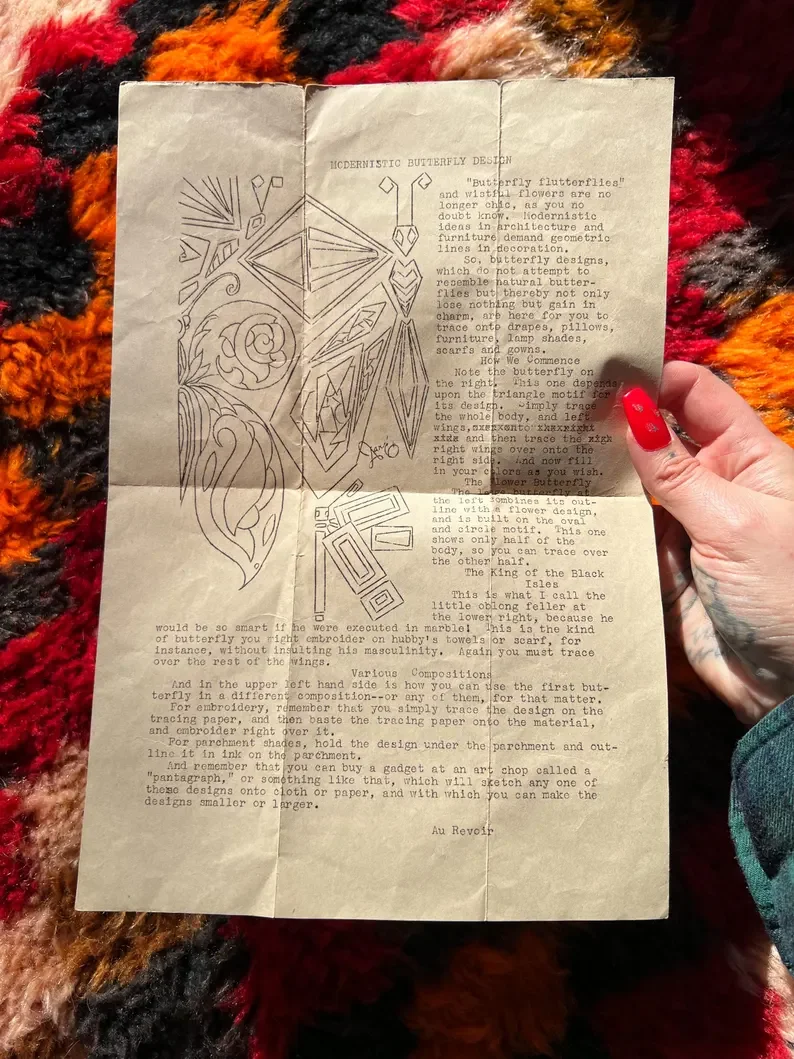 MODERNISTIC BUTTERFLY DESIGN
"Butterfly flutterflies"
and wistful flowers are no
longer chic, as you no
doubt know. Modernistic
ideas in architecture and
furniture demand geometric
lines in decoration.
So, butterfly designs,
which do not attempt to
resemble natural butter-
flies but thereby not only
lose nothing but gain in
charm, are here for you to
trace onto drapes, pillows,
furniture, lamp shades,
scarfs and gowns.
How We Commence
Note the butterfly on
the right. This one depends
upon the triangle motif for
its design. Simply trace
the whole body, and left
wings, onto
and then trace the
right wings over onto the
right side. And now fill
in your colors as you wish.
The Flower Butterfly
The large butterfly at
the left combines its out-
line with a flower design,
and is built on the oval
and circle motif. This one
shows only half of the
body, so you can trace over
the other half.
The King of the Black
Isles
This is what I call the
little oblong feller at
the lower right, because he
would be so smart if he were executed in marble! This is the kind
of butterfly you might embroider on hubby's towels or scarf, for
instance, without insulting his masculinity. Again you must trace
over the rest of the wings.
Various Compositions
And in the upper left hand side is how you can use the first but-
terfly in a different composition--or any of them, for that matter.
For embroidery, remember that you simply trace the design on the
tracing paper, and then baste the tracing paper onto the material,
and embroider right over it.
For parchment shades, hold the design under the parchment and out-
line it in ink on the parchment.
And remember that you can buy a gadget at an art shop called a
"pantagraph," or something like that, which will sketch any one of
these designs onto cloth or paper, and with which you can make the
designs smaller or larger.
Au Revoir